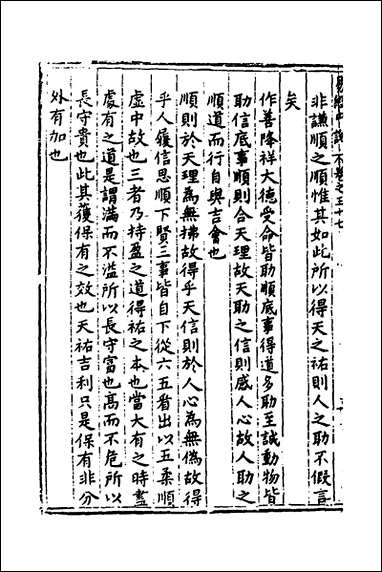 非謙順之順惟其如此所以得天之祐則人之助不假言
矣
作善降祥大德受命皆助順底事得道多助至誠動物皆
助信底事順則合天理故天助之信則感人心故人助之
順道而行自與吉會也
順則於天理為無拂故得乎天信則於人心為無偽故得
乎人履信思順下賢三事皆自下從六五看出以五柔順
虛中故也三者乃持盈之道得祐之本也當大有之時盡
處有之道是謂滿而不溢所以長守富也髙而不危所以
長守貴也此其獲保有之效也天祐吉利只是保有非分
外有加也